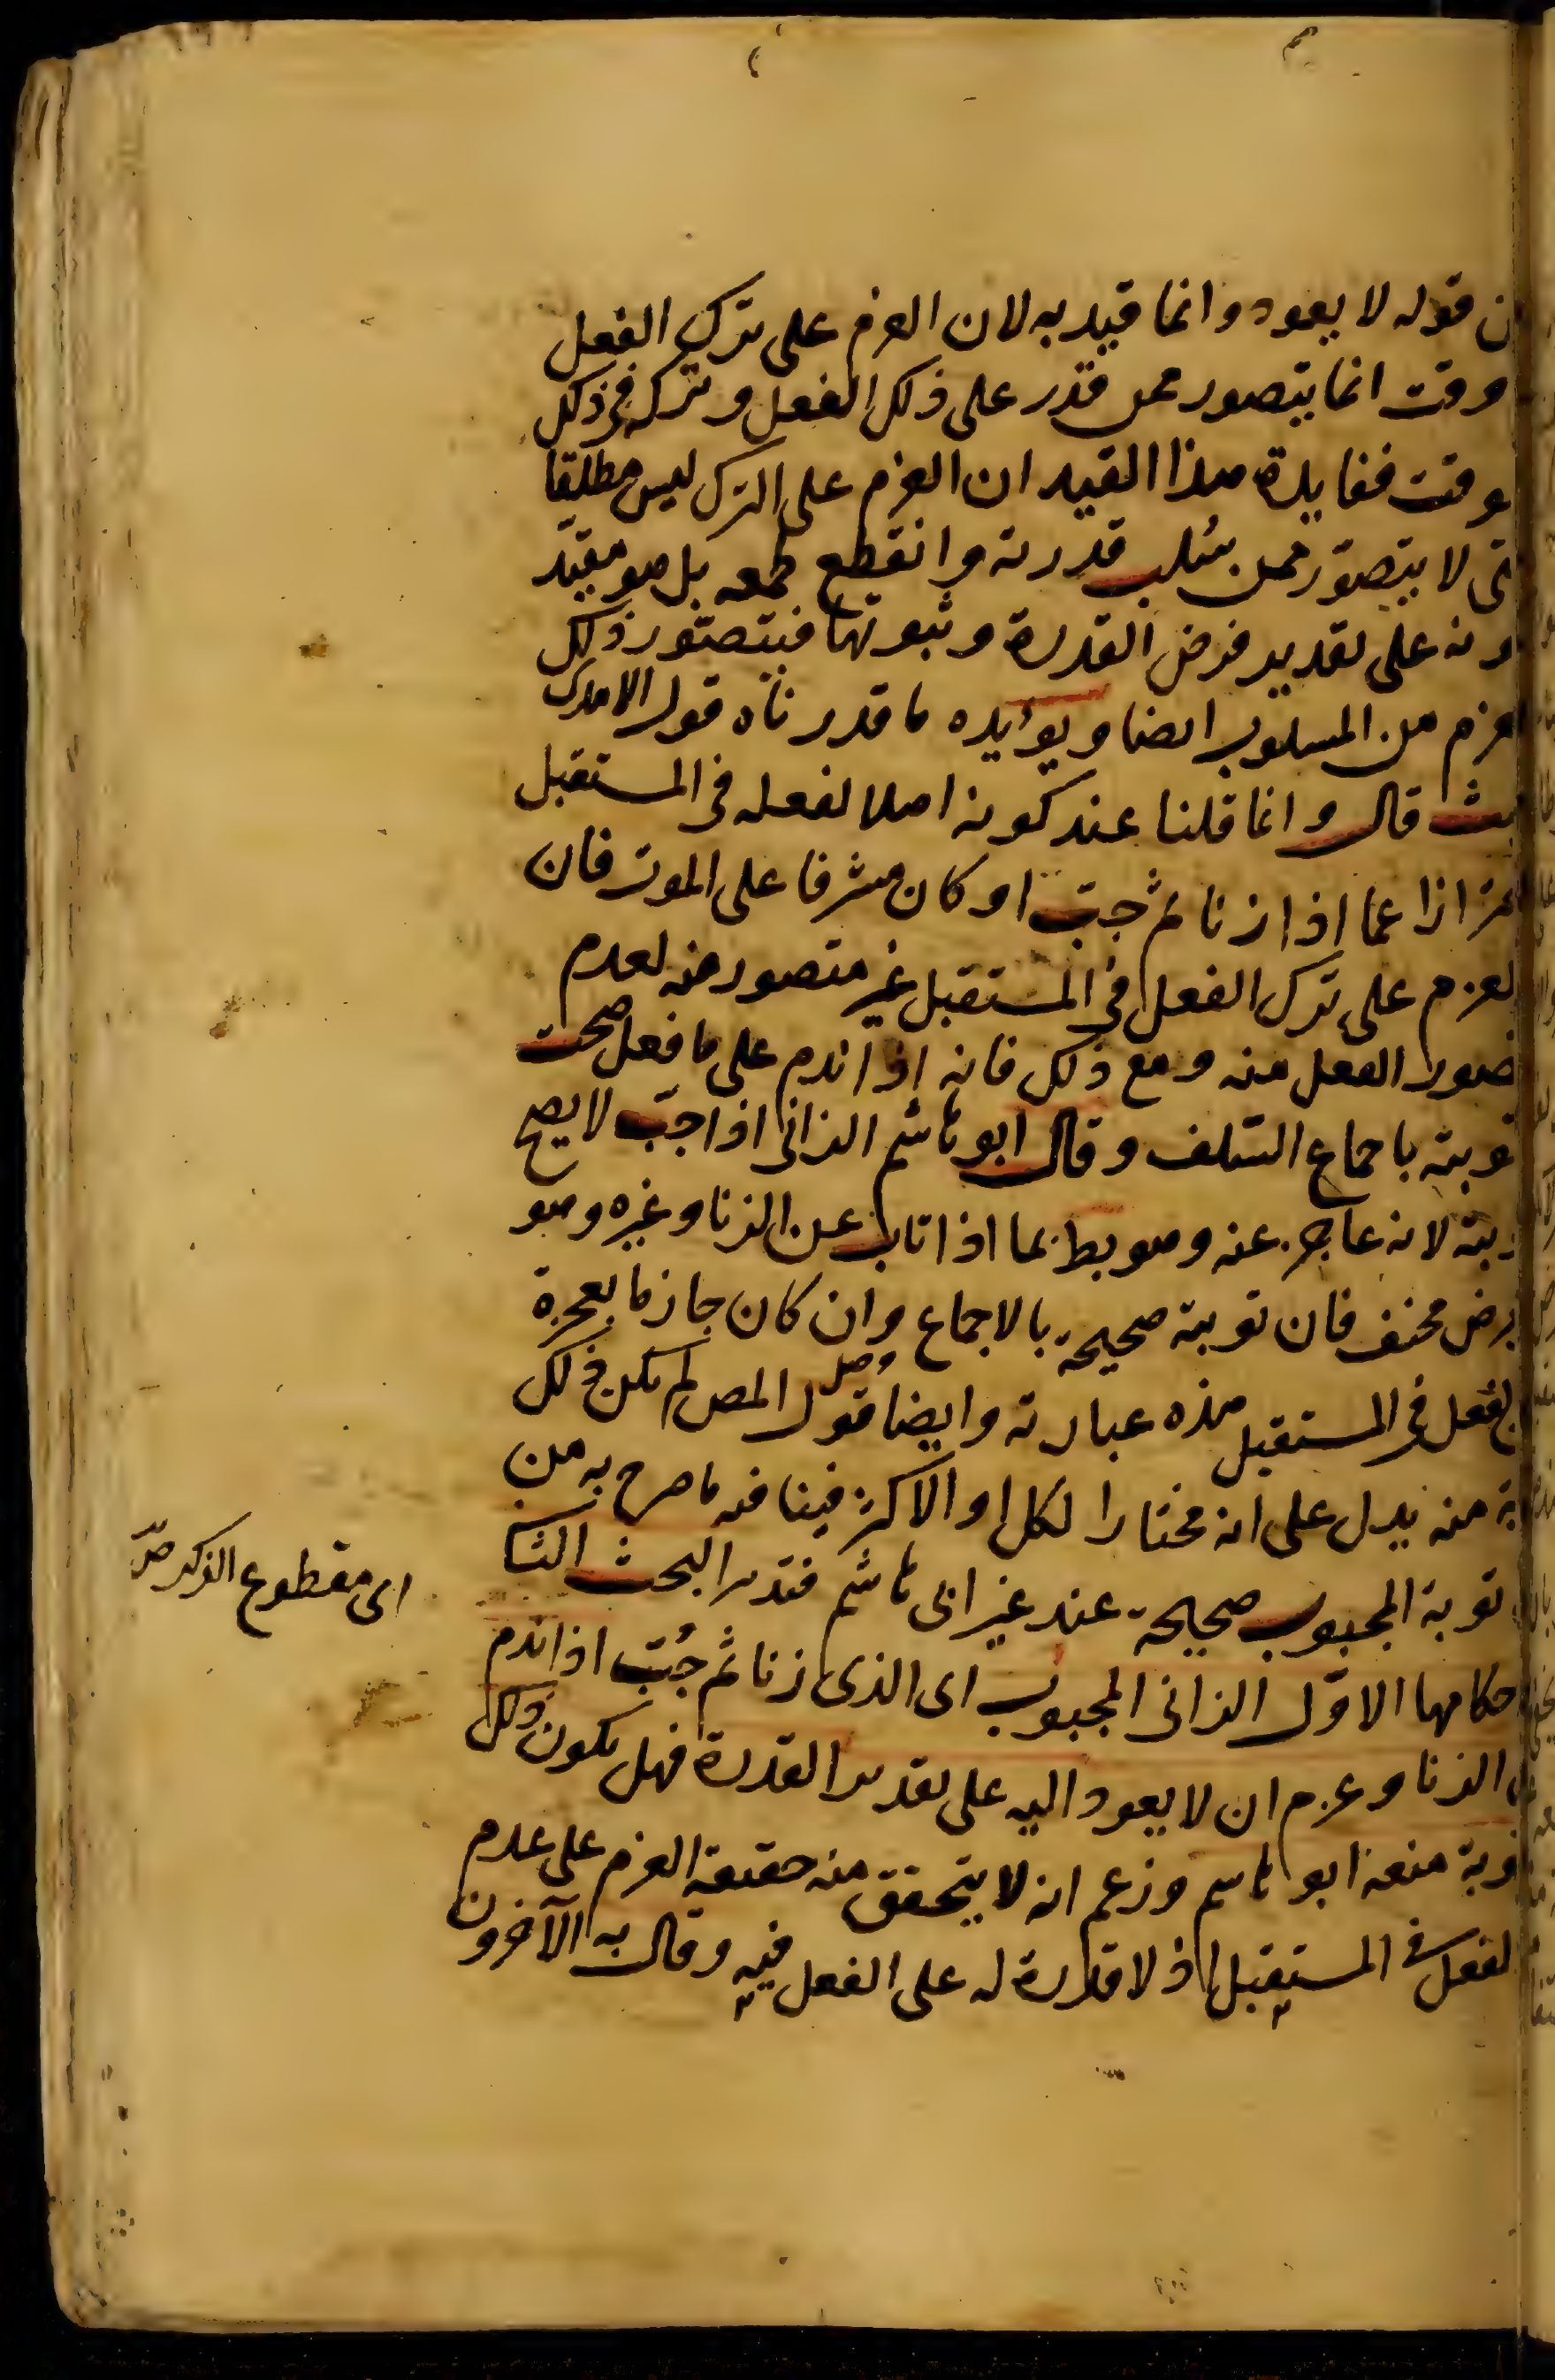 ن قوله لا يعود وانما قيد به لان العزم على ترك الفعل
وقت انما يتصور ممن قدر على ذلك الفعل وتركه فى ذلك
وقت ففايدة هذا القيد ان العزم على الترك ليس مطلقا
تى لا يتصوّر ممن سلب قدرته وانقطع طمعه بل هو مقيّد
ونه على تقدير فرض القدرة وثبوتها فيتصوّر ذلك
لعزم من المسلوب ايضا ويؤيده ما قدرناه قول الامدى
يث قال وانما قلنا عند كونه اهلا لفعله فى المستقبل
ترازا عما اذا زنا ثم جبّ او كان مشرفا على الموت فان
لعزم على ترك الفعل فى المستقبل غير متصور منه لعدم
صور الفعل منه ومع ذلك فانه اذا ندم على ما فعل صحت
توبته باجماع السّلف وقال ابو هاشم الزانى اذا جبّ لا يصح
بته لانه عاجز عنه وهو يبطل بما اذا تاب عن الزنا وغيره وهو
برض مخيف فان توبته صحيحة بالاجماع وان كان جازما بعجزه
لفعل فى المستقبل هذه عبارته وايضا قول المص لم يكن ذلك
بة منه يدل على انه مختارا لكل او الاكثر فينافيه ما صرح به من
توبة المجبوب صحيحة عند غير ابى هاشم فتدبر البحث الثا
حكامها الاوّل الزانى المجبوب اى الذى زنا ثم جُبّ اذا ندم
الزنا وعزم ان لا يعود اليه على تقدير القدرة فهل يكون ذلك
توبة منعه ابو هاشم وزعم انه لا يتحقق منه حقيقة العزم على عدم
لفعل فى المستقبل اذ لا قدرة له على الفعل فيه وقال به الآخرون
اى مقطوع الذكر